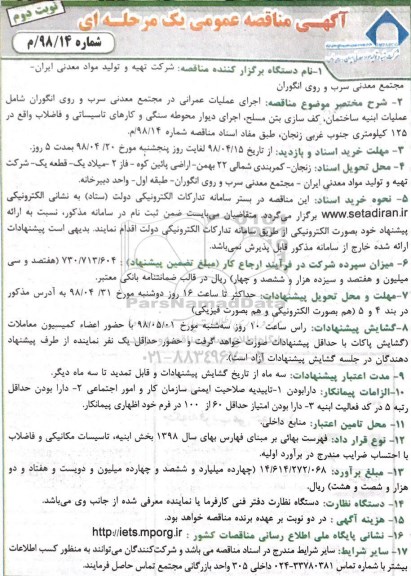 نوبت دوم
آگهی مناقصه عمومی یک مرحله ای
شماره ۹۸/۱۴/م
۱-نام دستگاه برگزار کننده مناقصه: شرکت تهیه و تولید مواد معدنی ایران-
مجتمع معدنی سرب و روی انگوران
۲- شرح مختصر موضوع مناقصه: اجرای عملیات عمرانی در مجتمع معدنی سرب و روی انگوران شامل
عملیات ابنیه ساختمان، کف سازی بتن مسلح، اجرای دیوار محوطه سنگی و کارهای تاسیساتی و فاضلاب واقع در
۱۲۵ کیلومتری جنوب غربی زنجان، طبق مفاد اسناد مناقصه شماره ۹۸/۱۴/م.
۳- مهلت خرید اسناد و بازدید: از تاریخ ۹۸/۰۴/۱۵ لغایت روز پنجشنبه مورخ ۹۸/۰۴/۲۰ بمدت ۵ روز.
۴- محل تحویل اسناد: زنجان-کمربندی شمالی ۲۲ بهمن-اراضی پائین کوه - فاز ۲ -میلاد یک- قطعه یک- شرکت
تهیه و تولید مواد معدنی ایران - مجتمع معدنی سرب و روی انگوران- طبقه اول- واحد دبیرخانه.
۵- نحوه خرید اسناد: این مناقصه در بستر سامانه تدارکات الکترونیکی دولت (ستاد) به نشانی الکترونیکی
www.setadiran.ir برگزار می‌گردد. متقاضیان می‌بایست ضمن ثبت نام در سامانه مذکور، نسبت به ارائه
پیشنهاد خود بصورت الکترونیکی از طریق سامانه تدارکات الکترونیکی دولت اقدام نمایند. بدیهی است پیشنهادات
ارائه شده خارج از سامانه مذکور قابل پذیرش نمی‌باشد.
۶- میزان سپرده شرکت در فرآیند ارجاع کار (مبلغ تضمین پیشنهاد) : ۷۳۰/۷۱۳/۶۰۴ (هفتصد و سی
میلیون و هفتصد و سیزده هزار و ششصد و چهار) ریال در قالب ضمانتنامه بانکی معتبر.
۷-مهلت و محل تحویل پیشنهادات: حداکثر تا ساعت ۱۶ روز دوشنبه مورخ ۳۱/ ۹۸/۰۴ به آدرس مذکور
در بند ۴ و ۵ (هم بصورت الکترونیکی و هم بصورت فیزیکی)
۸-گشایش پیشنهادات: راس ساعت ۱۰ روز سه‌شنبه مورخ ۹۸/۰۵/۰۱ با حضور اعضاء کمیسیون معاملات
(گشایش پاکات با حداقل پیشنهادات صورت خواهد گرفت و حضور حداقل یک نفر نماینده از طرف پیشنهاد
دهندگان در جلسه گشایش پیشنهادات آزاد است).
۹- مدت اعتبار پیشنهادات: سه ماه از تاریخ گشایش پیشنهادات و قابل تمدید تا سه ماه دیگر.
۱۰-الزامات پیمانکار: دارابودن ۱-تاییدیه صلاحیت ایمنی سازمان کار و امور اجتماعی ۲- دارا بودن حداقل
رتبه ۵ در کد فعالیت ابنیه ۳- دارا بودن امتیاز حداقل ۶۰ از ۱۰۰ در فرم خود اظهاری پیمانکار.
۱۱- محل تامین اعتبار: منابع داخلی.
۱۲- نوع قرار داد: فهرست بهائی بر مبنای فهارس بهای سال ۱۳۹۸ بخش ابنیه، تاسیسات مکانیکی و فاضلاب
با احتساب ضرایب مندرج در برآورد اولیه.
۱۳- مبلغ برآورد: ۱۴/۶۱۴/۲۷۲/۰۶۸ (چهارده میلیارد و ششصد و چهارده میلیون و دویست و هفتاد و دو
هزار و شصت و هشت) ریال.
۱۴- دستگاه نظارت: دستگاه نظارت دفتر فنی کارفرما یا نماینده معرفی شده از جانب وی می‌باشد.
۱۵- هزینه آگهی : در دو نوبت بر عهده برنده مناقصه خواهد بود.
۱۶- نشانی پایگاه ملی اطلاع رسانی مناقصات کشور : http://iets.mporg.ir
۱۷- سایر شرایط: سایر شرایط مندرج در اسناد مناقصه می باشد و شرکت‌کنندگان می‌توانند به منظور کسب اطلاعات
بیشتر با شماره تماس ۳۳۷۸۰۳۸۱-۰۲۴ داخلی ۳۰۵ واحد بازرگانی مجتمع تماس حاصل فرمایند.